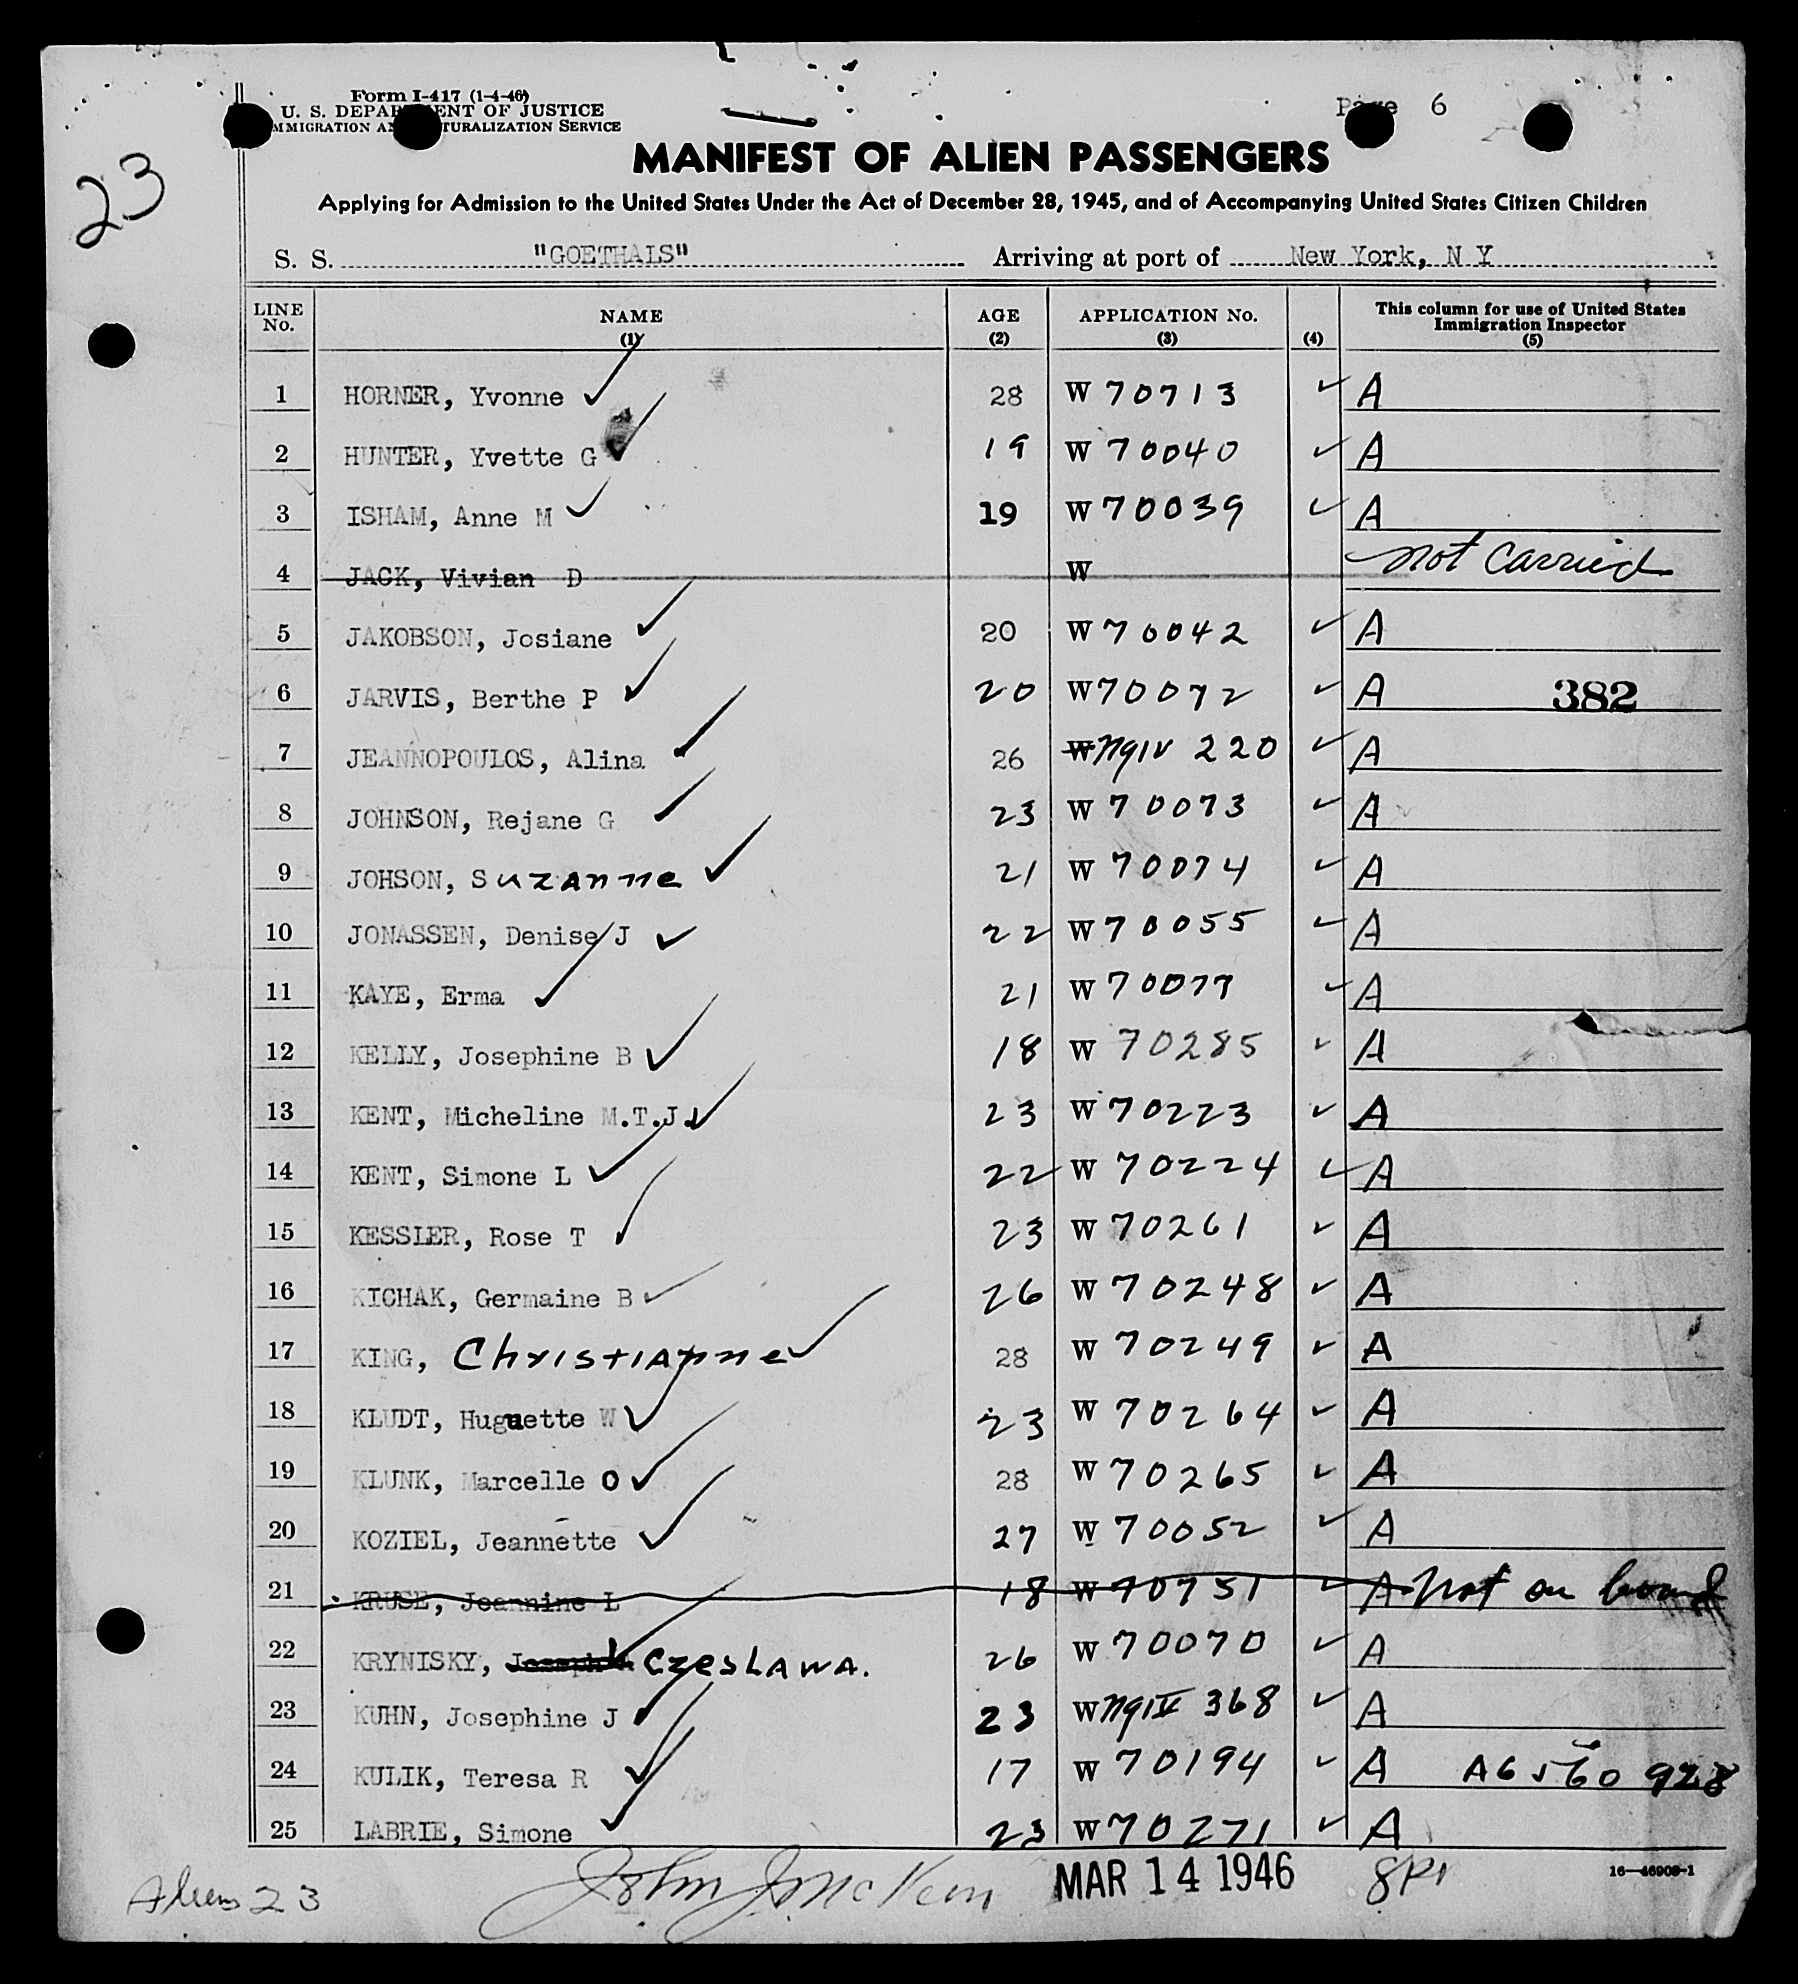 Form I-417 (1-4-46)
Page 6
U. S. DEPARTMENT OF JUSTICE
IMMIGRATION AND NATURALIZATION SERVICE
23
MANIFEST OF ALIEN PASSENGERS
Applying for Admission to the United States Under the Act of December 28, 1945, and of Accompanying United States Citizen Children
S. S. "GOETHALS" Arriving at port of New York, N Y
LINE No. NAME (1) AGE (2) APPLICATION No. (3) (4) This column for use of United States Immigration Inspector (5)
1 HORNER, Yvonne ✓ 28 W 70713 ✓ A
2 HUNTER, Yvette G ✓ 19 W 70040 ✓ A
3 ISHAM, Anne M ✓ 19 W 70039 ✓ A
4 JACK, Vivian D W not carried
5 JAKOBSON, Josiane ✓ 20 W 70042 ✓ A
6 JARVIS, Berthe P ✓ 20 W 70072 ✓ A 382
7 JEANNOPOULOS, Alina ✓ 26 W NqIV 220 ✓ A
8 JOHNSON, Rejane G ✓ 23 W 70073 ✓ A
9 JOHSON, Suzanne ✓ 21 W 70074 ✓ A
10 JONASSEN, Denise J ✓ 22 W 70055 ✓ A
11 KAYE, Erma ✓ 21 W 70077 ✓ A
12 KELLY, Josephine B ✓ 18 W 70285 ✓ A
13 KENT, Micheline M.T.J. ✓ 23 W 70223 ✓ A
14 KENT, Simone L ✓ 22 W 70224 ✓ A
15 KESSLER, Rose T ✓ 23 W 70261 ✓ A
16 KICHAK, Germaine B ✓ 26 W 70248 ✓ A
17 KING, Christianne ✓ 28 W 70249 ✓ A
18 KLUDT, Huguette W ✓ 23 W 70264 ✓ A
19 KLUNK, Marcelle O ✓ 28 W 70265 ✓ A
20 KOZIEL, Jeannette ✓ 27 W 70052 ✓ A
21 KRUSE, Jeannine L 18 W 70751 ✓ A not on board
22 KRYNISKY, Czeslawa. ✓ 26 W 70070 ✓ A
23 KUHN, Josephine J ✓ 23 W NqIV 368 ✓ A
24 KULIK, Teresa R ✓ 17 W 70194 ✓ A A6 560 928
25 LABRIE, Simone ✓ 23 W 70271 ✓ A
Aliens 23 MAR 14 1946 16—46909-1